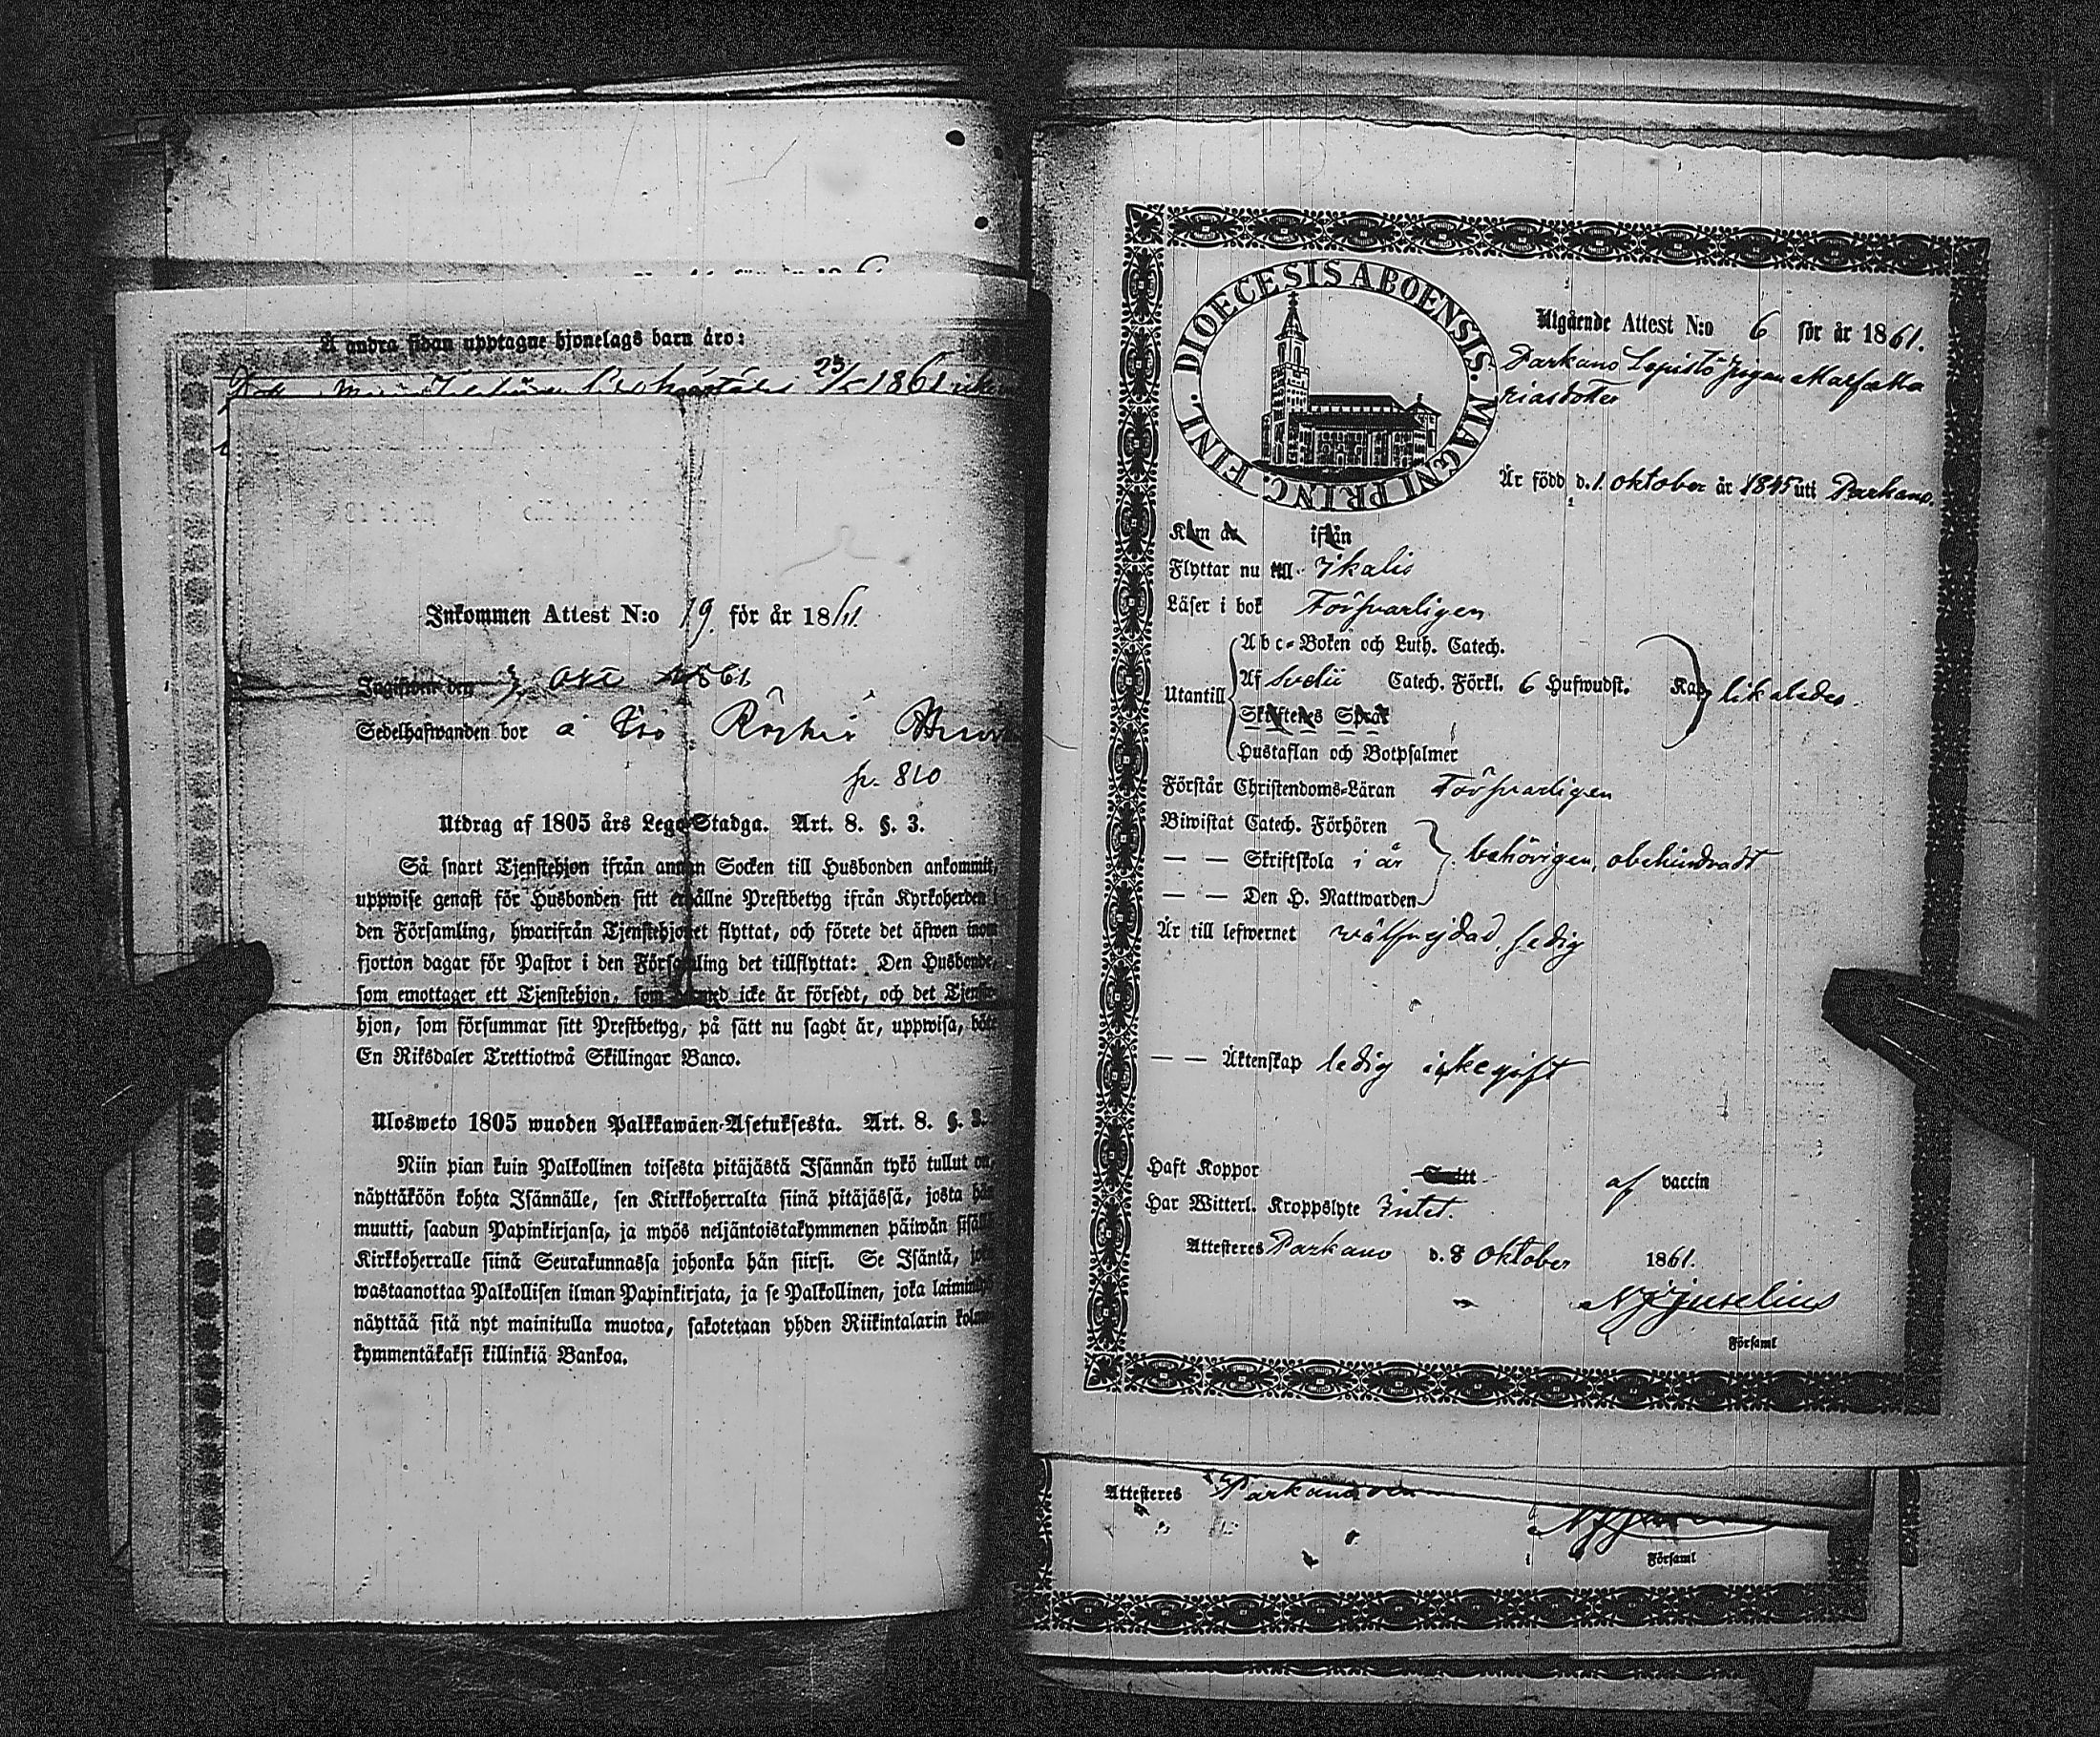 Å andra sidan upptagne hjonelags barn äro:
23/5 1861
Inkommen Attest N:o 19. för år 1861.
Ingifwen den Okt 1861
Sedelhafwanden bor å
p. 810
Utdrag af 1805 års Lego-Stadga. Art. 8. §. 3.
Så snart Tjenstehjon ifrån annan Socken till Husbonden ankommit,
uppwise genast för Husbonden sitt erhållne Prestbetyg ifrån Kyrkoherden i
den Församling, hwarifrån Tjenstehjonet flyttat, och förete det äfwen inom
fjorton dagar för Pastor i den Församling det tillflyttat: Den Husbonde,
som emottager ett Tjenstehjon, som icke är försedt, och det Tjenste-
hjon, som försummar sitt Prestbetyg, på sätt nu sagdt är, uppwisa, böte
En Riksdaler Trettiotwå Skillingar Banco.
Ulosweto 1805 wuoden Palkkawäen-Asetuksesta. Art. 8. §. 3.
Niin pian kuin Palkollinen toisesta pitäjästä Isännän tykö tullut on,
näyttäköön kohta Isännälle, sen Kirkkoherralta siinä pitäjässä, josta hän
muutti, saadun Papinkirjansa, ja myös neljäntoistakymmenen päiwän sisällä
Kirkkoherralle siinä Seurakunnassa johonka hän siirsi. Se Isäntä, joka
wastaanottaa Palkollisen ilman Papinkirjata, ja se Palkollinen, joka laiminlyö
näyttää sitä nyt mainitulla muotoa, sakotetaan yhden Riikintalarin kolme
kymmentäkaksi killinkiä Bankoa.
DIOECESIS ABOENSIS. MAGNI PRINC. FINL.
Utgående Attest N:o 6 för år 1861.
Parkano Lepistö Pigan
riasdotter
Är född d. 1 oktober år 1845 uti Parkano.
Kom år ifrån
Flyttar nu till Ikalis
Läser i bok Försvarligen
Abc-Boken och Luth. Catech.
Utantill
Af Svebii Catech. Förkl. 6 Hufwudst. Kap likaledes.
Skriftenes Språk
Hustaflan och Botpsalmer
Förstår Christendoms-Läran Försvarligen
Biwistat Catech. Förhören
— — Skriftskola i år behörigen, obehindradt
— — Den H. Nattwarden
Är till lefwernet välfrejdad, ledig
— — Äktenskap ledig icke gift
Haft Koppor af vaccin
Har Witterl. Kroppslyte Intet.
Attesteres Parkano d. 8 oktober 1861.
Juselius
Församl
Attesteres Parkano
Församl